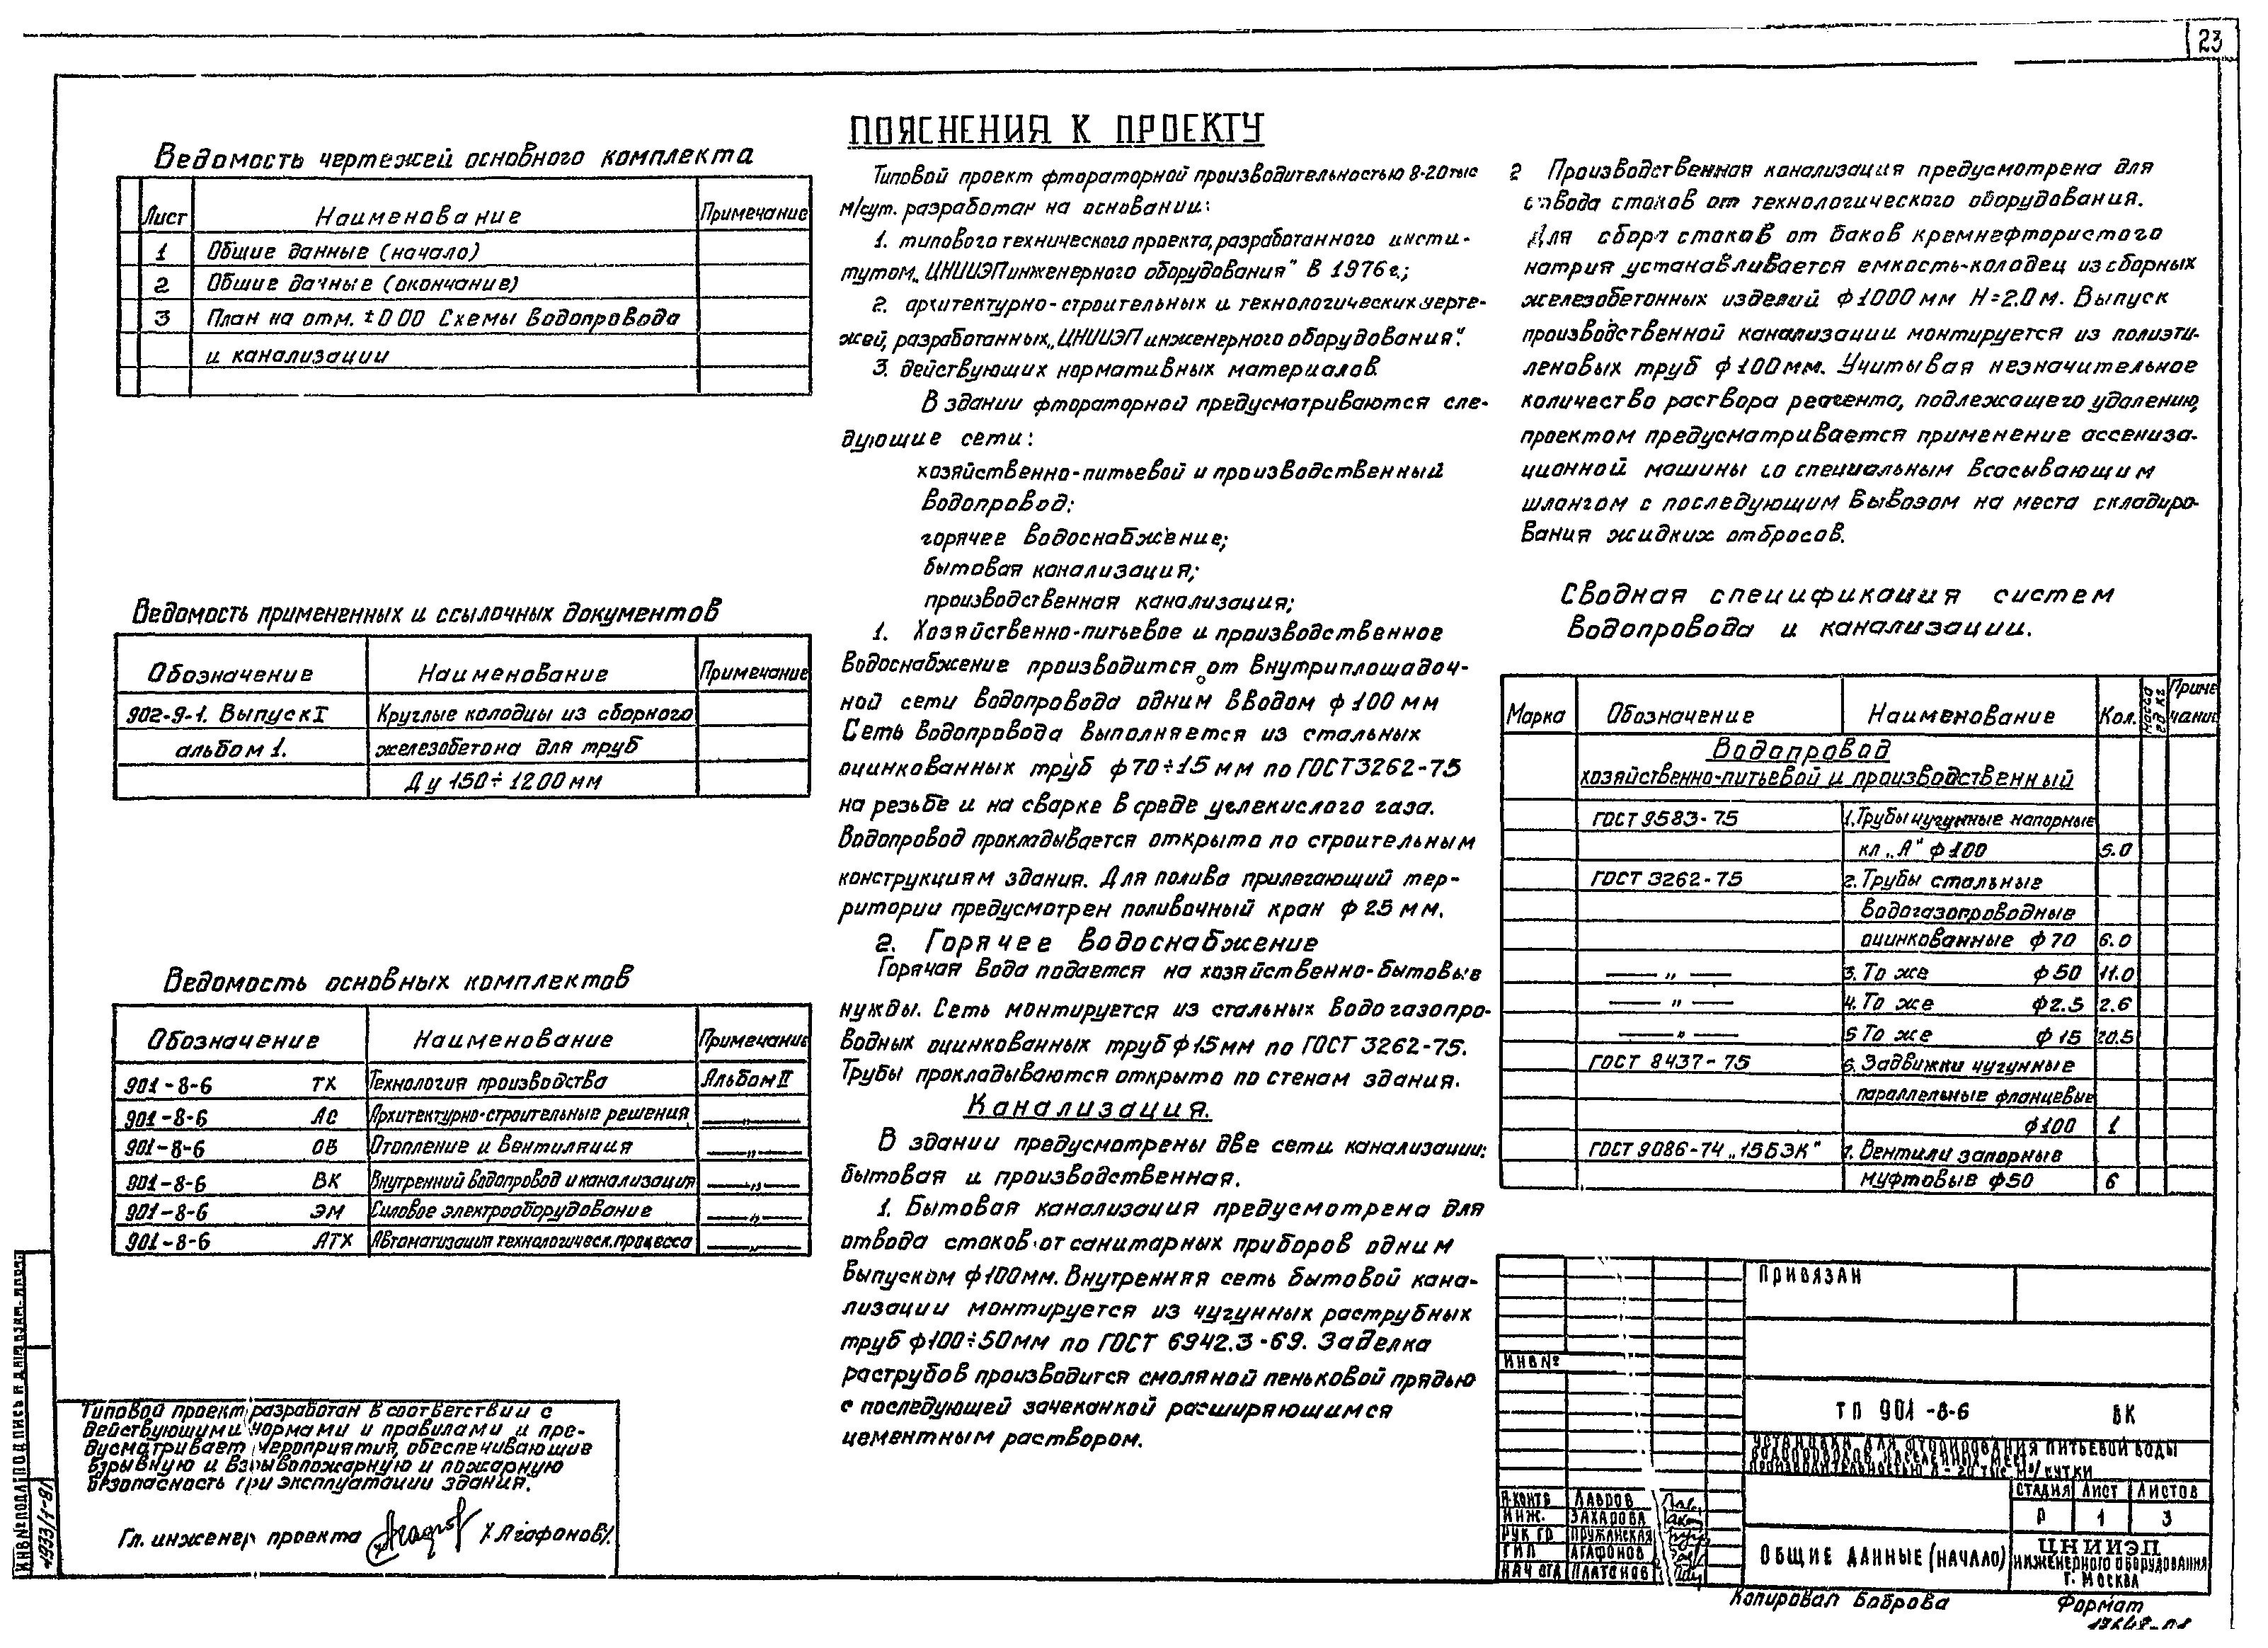 23
Ведомость чертежей основного комплекта
Лист Наименование Примечание
1 Общие данные (начало)
2 Общие данные (окончание)
3 План на отм. ±0 00 Схемы водопровода
и канализации
Ведомость примененных и ссылочных документов
Обозначение Наименование Примечание
902-9-1. Выпуск I Круглые колодцы из сборного
альбом 1. железобетона для труб
Ду 150÷1200 мм
Ведомость основных комплектов
Обозначение Наименование Примечание
901-8-6 ТХ Технология производства Альбом II
901-8-6 АС Архитектурно-строительные решения —"—
901-8-6 ОВ Отопление и вентиляция —"—
901-8-6 ВК Внутренний водопровод и канализация —"—
901-8-6 ЭМ Силовое электрооборудование —"—
901-8-6 АТХ Автоматизация технологическ. процесса —"—
Типовой проект разработан в соответствии с
действующими нормами и правилами и пре-
дусматривает мероприятия, обеспечивающие
взрывную и взрывопожарную и пожарную
безопасность при эксплуатации здания.
Гл. инженер проекта /Агафонов/.
ПОЯСНЕНИЯ К ПРОЕКТУ
Типовой проект фтораторной производительностью 8-20 тыс
м/сут. разработан на основании:
1. типового технического проекта, разработанного инсти-
тутом „ЦНИИЭП инженерного оборудования" в 1976 г.;
2. архитектурно-строительных и технологических черте-
жей, разработанных „ЦНИИЭП инженерного оборудования".
3. действующих нормативных материалов.
В здании фтораторной предусматриваются сле-
дующие сети:
хозяйственно-питьевой и производственный
водопровод;
горячее водоснабжение;
бытовая канализация;
производственная канализация;
1. Хозяйственно-питьевое и производственное
водоснабжение производится от внутриплощадоч-
ной сети водопровода одним вводом ф 100 мм
Сеть водопровода выполняется из стальных
оцинкованных труб ф 70÷15 мм по ГОСТ 3262-75
на резьбе и на сварке в среде углекислого газа.
Водопровод прокладывается открыто по строительным
конструкциям здания. Для полива прилегающий тер-
ритории предусмотрен поливочный кран ф 25 мм.
2. Горячее водоснабжение
Горячая вода подается на хозяйственно-бытовые
нужды. Сеть монтируется из стальных водогазопро-
водных оцинкованных труб ф 15мм по ГОСТ 3262-75.
Трубы прокладываются открыто по стенам здания.
Канализация.
В здании предусмотрены две сети канализации:
бытовая и производственная.
1. Бытовая канализация предусмотрена для
отвода стоков от санитарных приборов одним
выпуском ф 100мм. Внутренняя сеть бытовой кана-
лизации монтируется из чугунных раструбных
труб ф 100÷50мм по ГОСТ 6942.3-69. Заделка
раструбов производится смоляной пеньковой прядью
с последующей зачеканкой расширяющимся
цементным раствором.
2 Производственная канализация предусмотрена для
отвода стоков от технологического оборудования.
Для сбора стоков от баков кремнефтористого
натрия устанавливается емкость-колодец из сборных
железобетонных изделий ф 1000 мм Н=2.0 м. Выпуск
производственной канализации монтируется из полиэти-
леновых труб ф 100мм. Учитывая незначительное
количество раствора реагента, подлежащего удалению,
проектом предусматривается применение ассениза-
ционной машины со специальным всасывающим
шлангом с последующим вывозом на места складиро-
вания жидких отбросов.
Сводная спецификация систем
водопровода и канализации.
Марка Обозначение Наименование Кол. Масса ед кг Приме чание
Водопровод
хозяйственно-питьевой и производственный
ГОСТ 9583-75 1. Трубы чугунные напорные
кл „А" ф 100 5.0
ГОСТ 3262-75 2. Трубы стальные
водогазопроводные
оцинкованные ф 70 6.0
—"— 3. То же ф 50 11.0
—"— 4. То же ф 2.5 2.6
—"— 5 То же ф 15 20.5
ГОСТ 8437-75 6. Задвижки чугунные
параллельные фланцевые
ф 100 1
ГОСТ 9086-74 „15БЭК" 7. Вентили запорные
муфтовые ф 50 6
ПРИВЯЗАН
ИНВ №
ТП 901-8-6 ВК
УСТАНОВКИ ДЛЯ ФТОРИРОВАНИЯ ПИТЬЕВОЙ ВОДЫ
ВОДОПРОВОДОВ НАСЕЛЕННЫХ МЕСТ
ПРОИЗВОДИТЕЛЬНОСТЬЮ 8-20 ТЫС М³/СУТКИ
СТАДИЯ ЛИСТ ЛИСТОВ
Р 1 3
Н КОНТР ЛАВРОВ
ИНЖ. ЗАХАРОВА
РУК ГР ПРУЖАНСКАЯ
ГИП АГАФОНОВ
НАЧ ОТД ПЛАТОНОВ
ОБЩИЕ ДАННЫЕ (НАЧАЛО)
ЦНИИЭП
ИНЖЕНЕРНОГО ОБОРУДОВАНИЯ
Г. МОСКВА
Копировал Боброва Формат
ИНВ № ПОДЛ ПОДПИСЬ И ДАТА ВЗАМ. ИНВ.